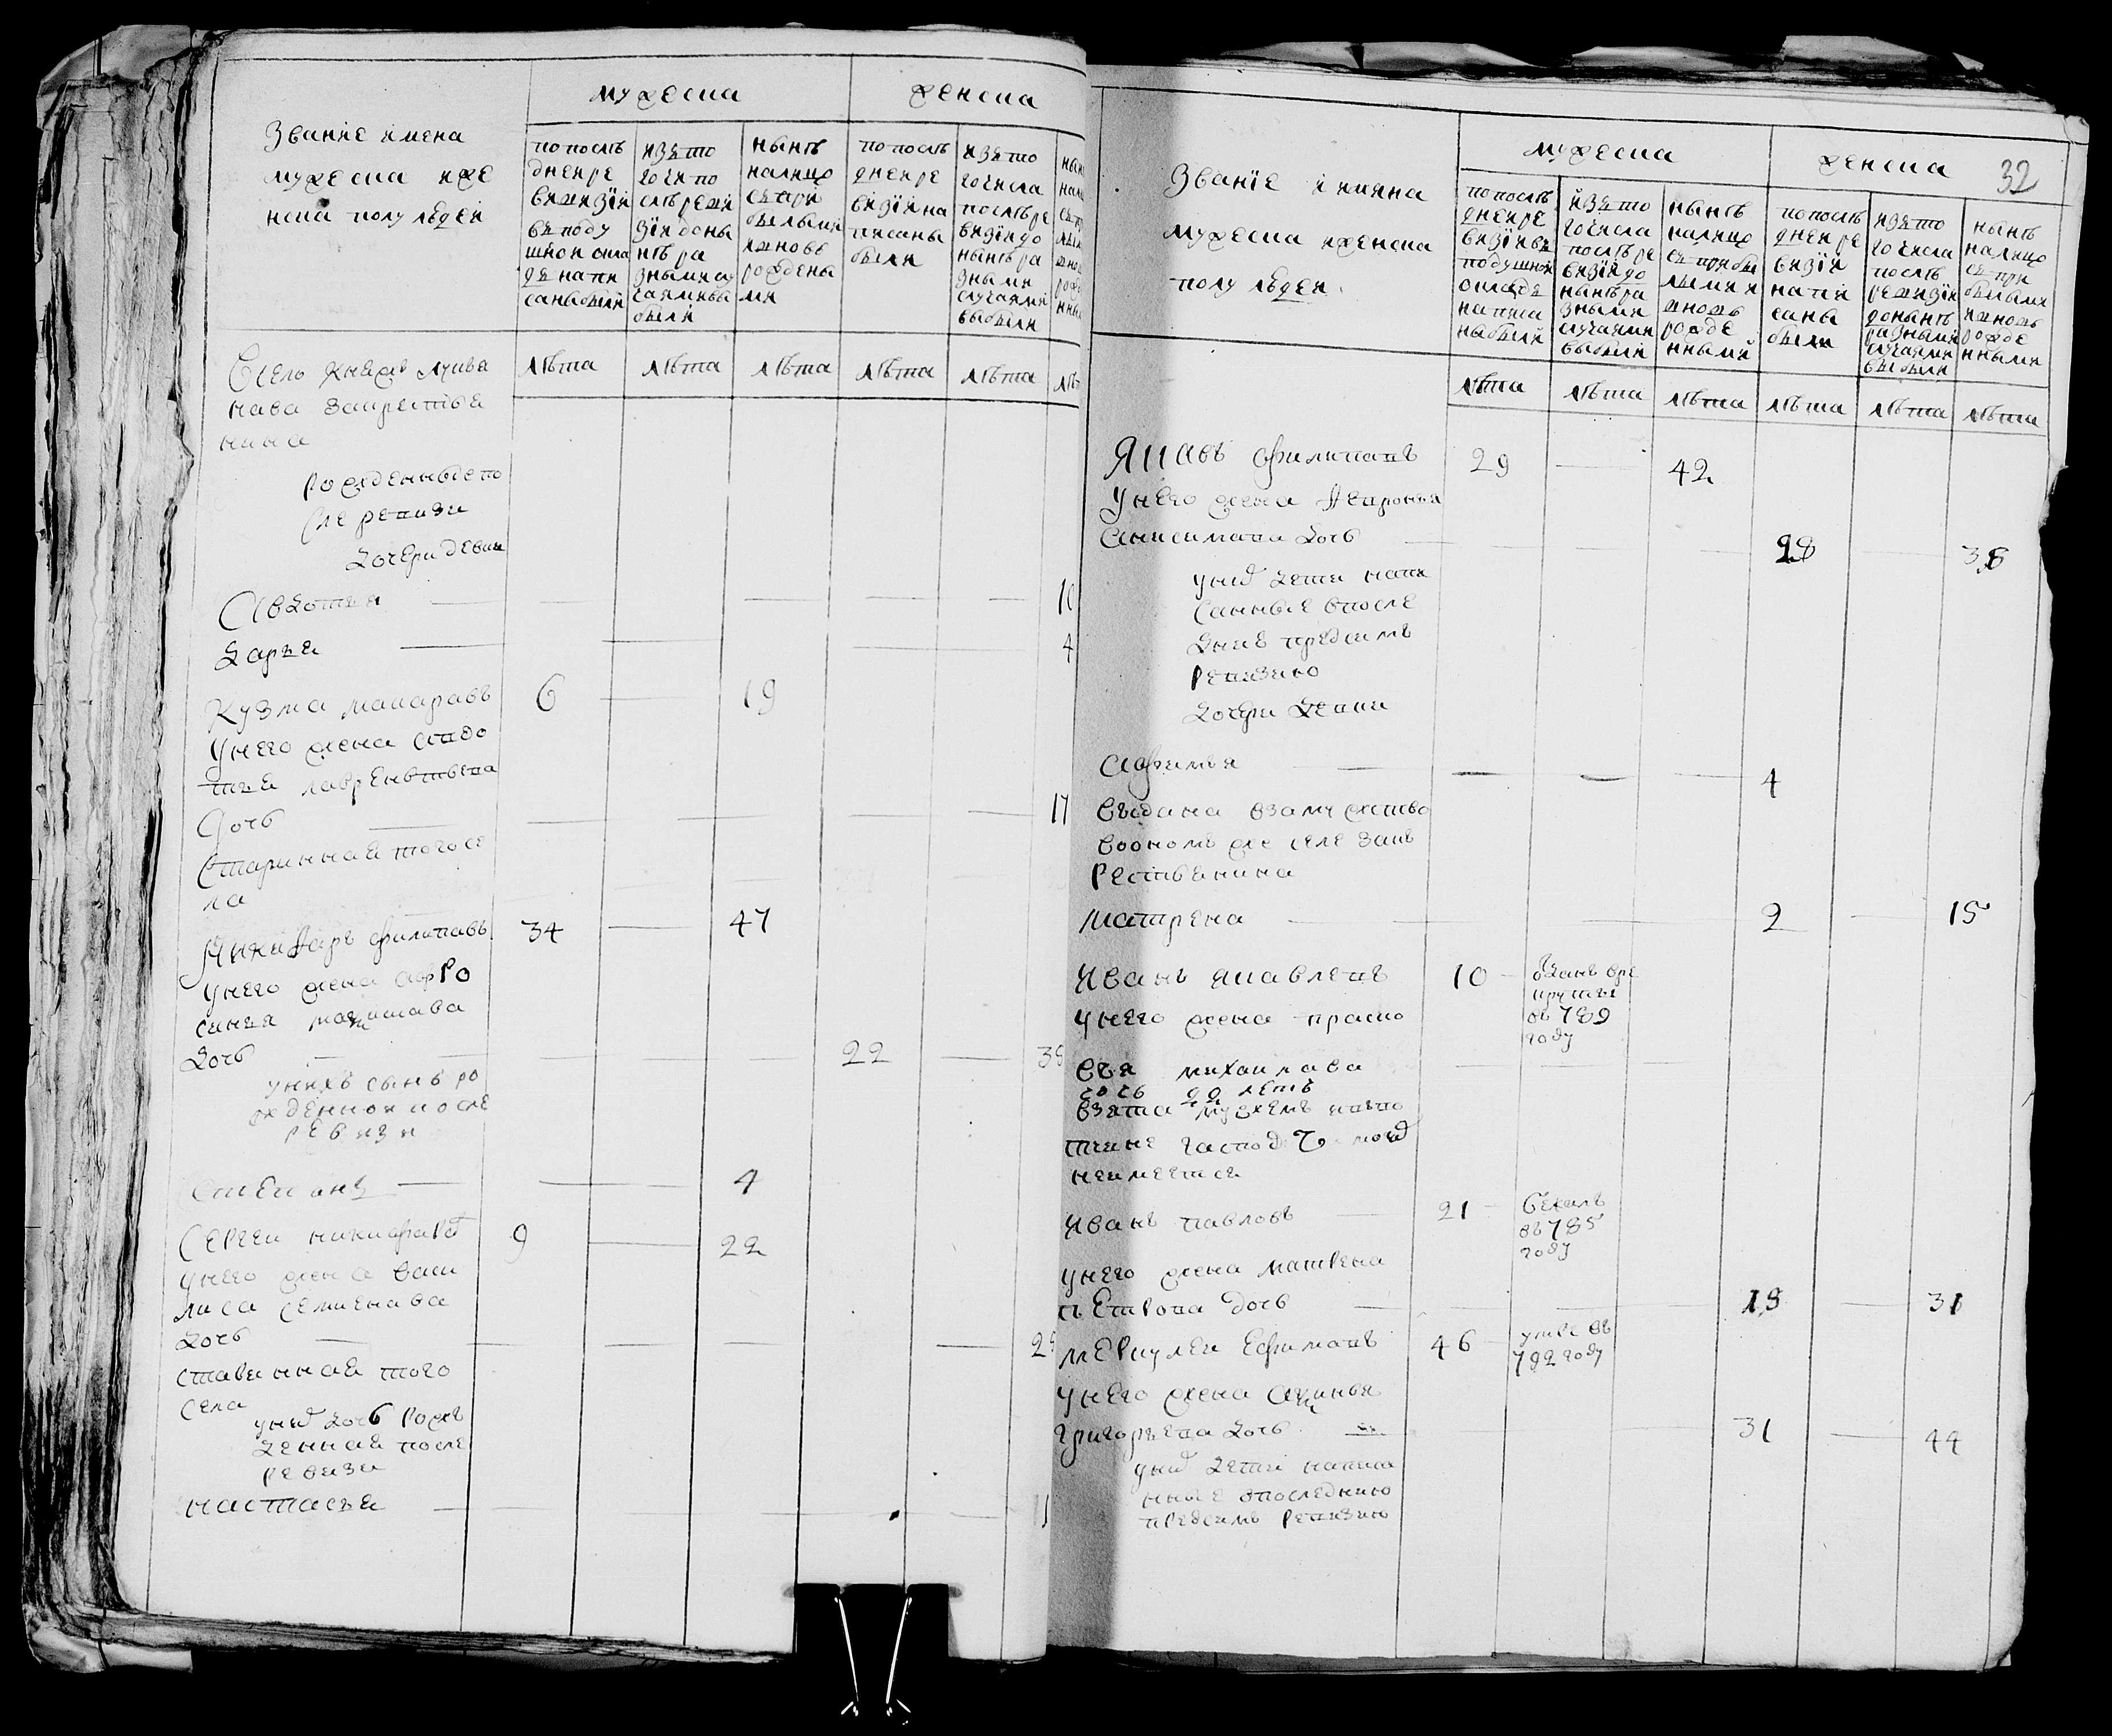 Званіе имена
мужеска и же
нска полу людей
мужеска
женска
по послѣ
дней ре
визіи
въ поду
шной окла
дъ напи
саны были
изъ то
го чи по
слѣ реви
зіи до ны
нѣ ра
зными слу
чаями вы
были
нынѣ
налицо
съ при
былыми
и новоро
жденны
ми
по послѣ
дней ре
визіи на
писаны
были
изъ то
го числа
послѣ ре
визіи до
нынѣ ра
зными
случаями
выбыли
лѣта
лѣта
лѣта
лѣта
лѣта
рожденные по
сле ревизи
дочери девки
Авдотья
10
Дарья
4
Кузма макаравъ
6
19
у него жена авдо
тья лаврентьева
дочь
17
старинная того се
ла
Никифаръ филипавъ
34
47
у него жена афро
синья
дочь
22
у нихъ сынъ ро
жденнои после
ревизи
степанъ
4
Сергеи никифаравъ
9
22
у него жена васи
лиса семиенава
дочь
старинная того
села
у них дочь рож
денная после
ревизи
настасья
32
Званіе имяна
мужеска и женска
полу людей
мужеска
женска
по послѣ
дней ре
визіи въ
подушной
окладъ
написа
ны были
изъ то
го числа
послѣ ре
визіи до
нынѣ ра
зными
случаями
выбыли
нынѣ
налицо
съ прибы
лыми и
вновь
рожде
нными
по послѣ
дней ре
визіи
напи
саны
были
изъ то
го числа
послѣ
ревизіи
до нынѣ
разными
случаями
выбыли
нынѣ
налицо
съ при
былыми
и вновь
рожде
нными
лѣта
лѣта
лѣта
лѣта
лѣта
лѣта
Якавъ филипавъ
29
42
у него жена февронья
анисимава дочь
у них дети напи
санные в после
днею пред симъ
ревизию
дочери девки
Афимья
4
выдана в замужство
во оном же селе за кь
рестьянина
матрена
2
15
Иванъ яковлевъ
10
отданъ в ре
круты
въ 789
году
у него жена праско
вья михаилава
дочь 22 летъ
взята мужемъ
неимеется
Иванъ павловъ
21
бежалъ
въ 785
году
у него жена матрена
петрова дочь
31
меркулеи Ефимавъ
46
умре въ
792 году
у него жена
григорьева дочь
31
44
у них дети написа
нные в последнюю
пред симъ ревизию